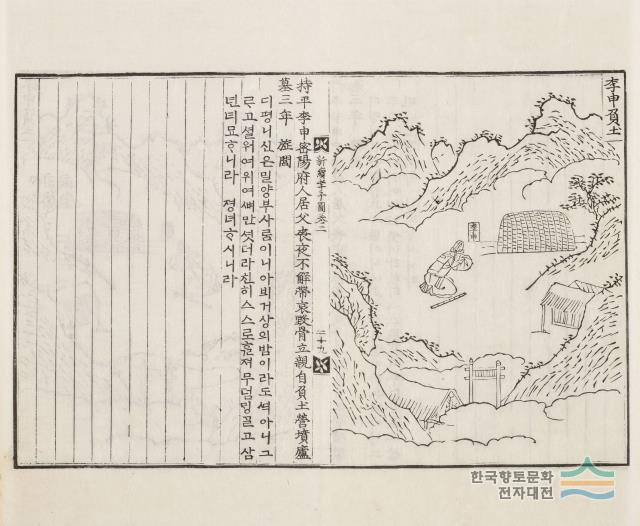 李申負土
李申
持平李申密陽府人居父喪夜不解帶哀毀骨立親自負土營墳廬
墓三年 旌閭
디평니신은밀양부사룸이니아비거상의밤이라도씌아니그
르고셜워여위여뼈만셧더라친히스스로흙져무덤밍골고삼
년녀묘ᄒᆞ니라 졍녀ᄒᆞ시니라
新續孝子圖卷二
二十九
한국향토문화
전자대전